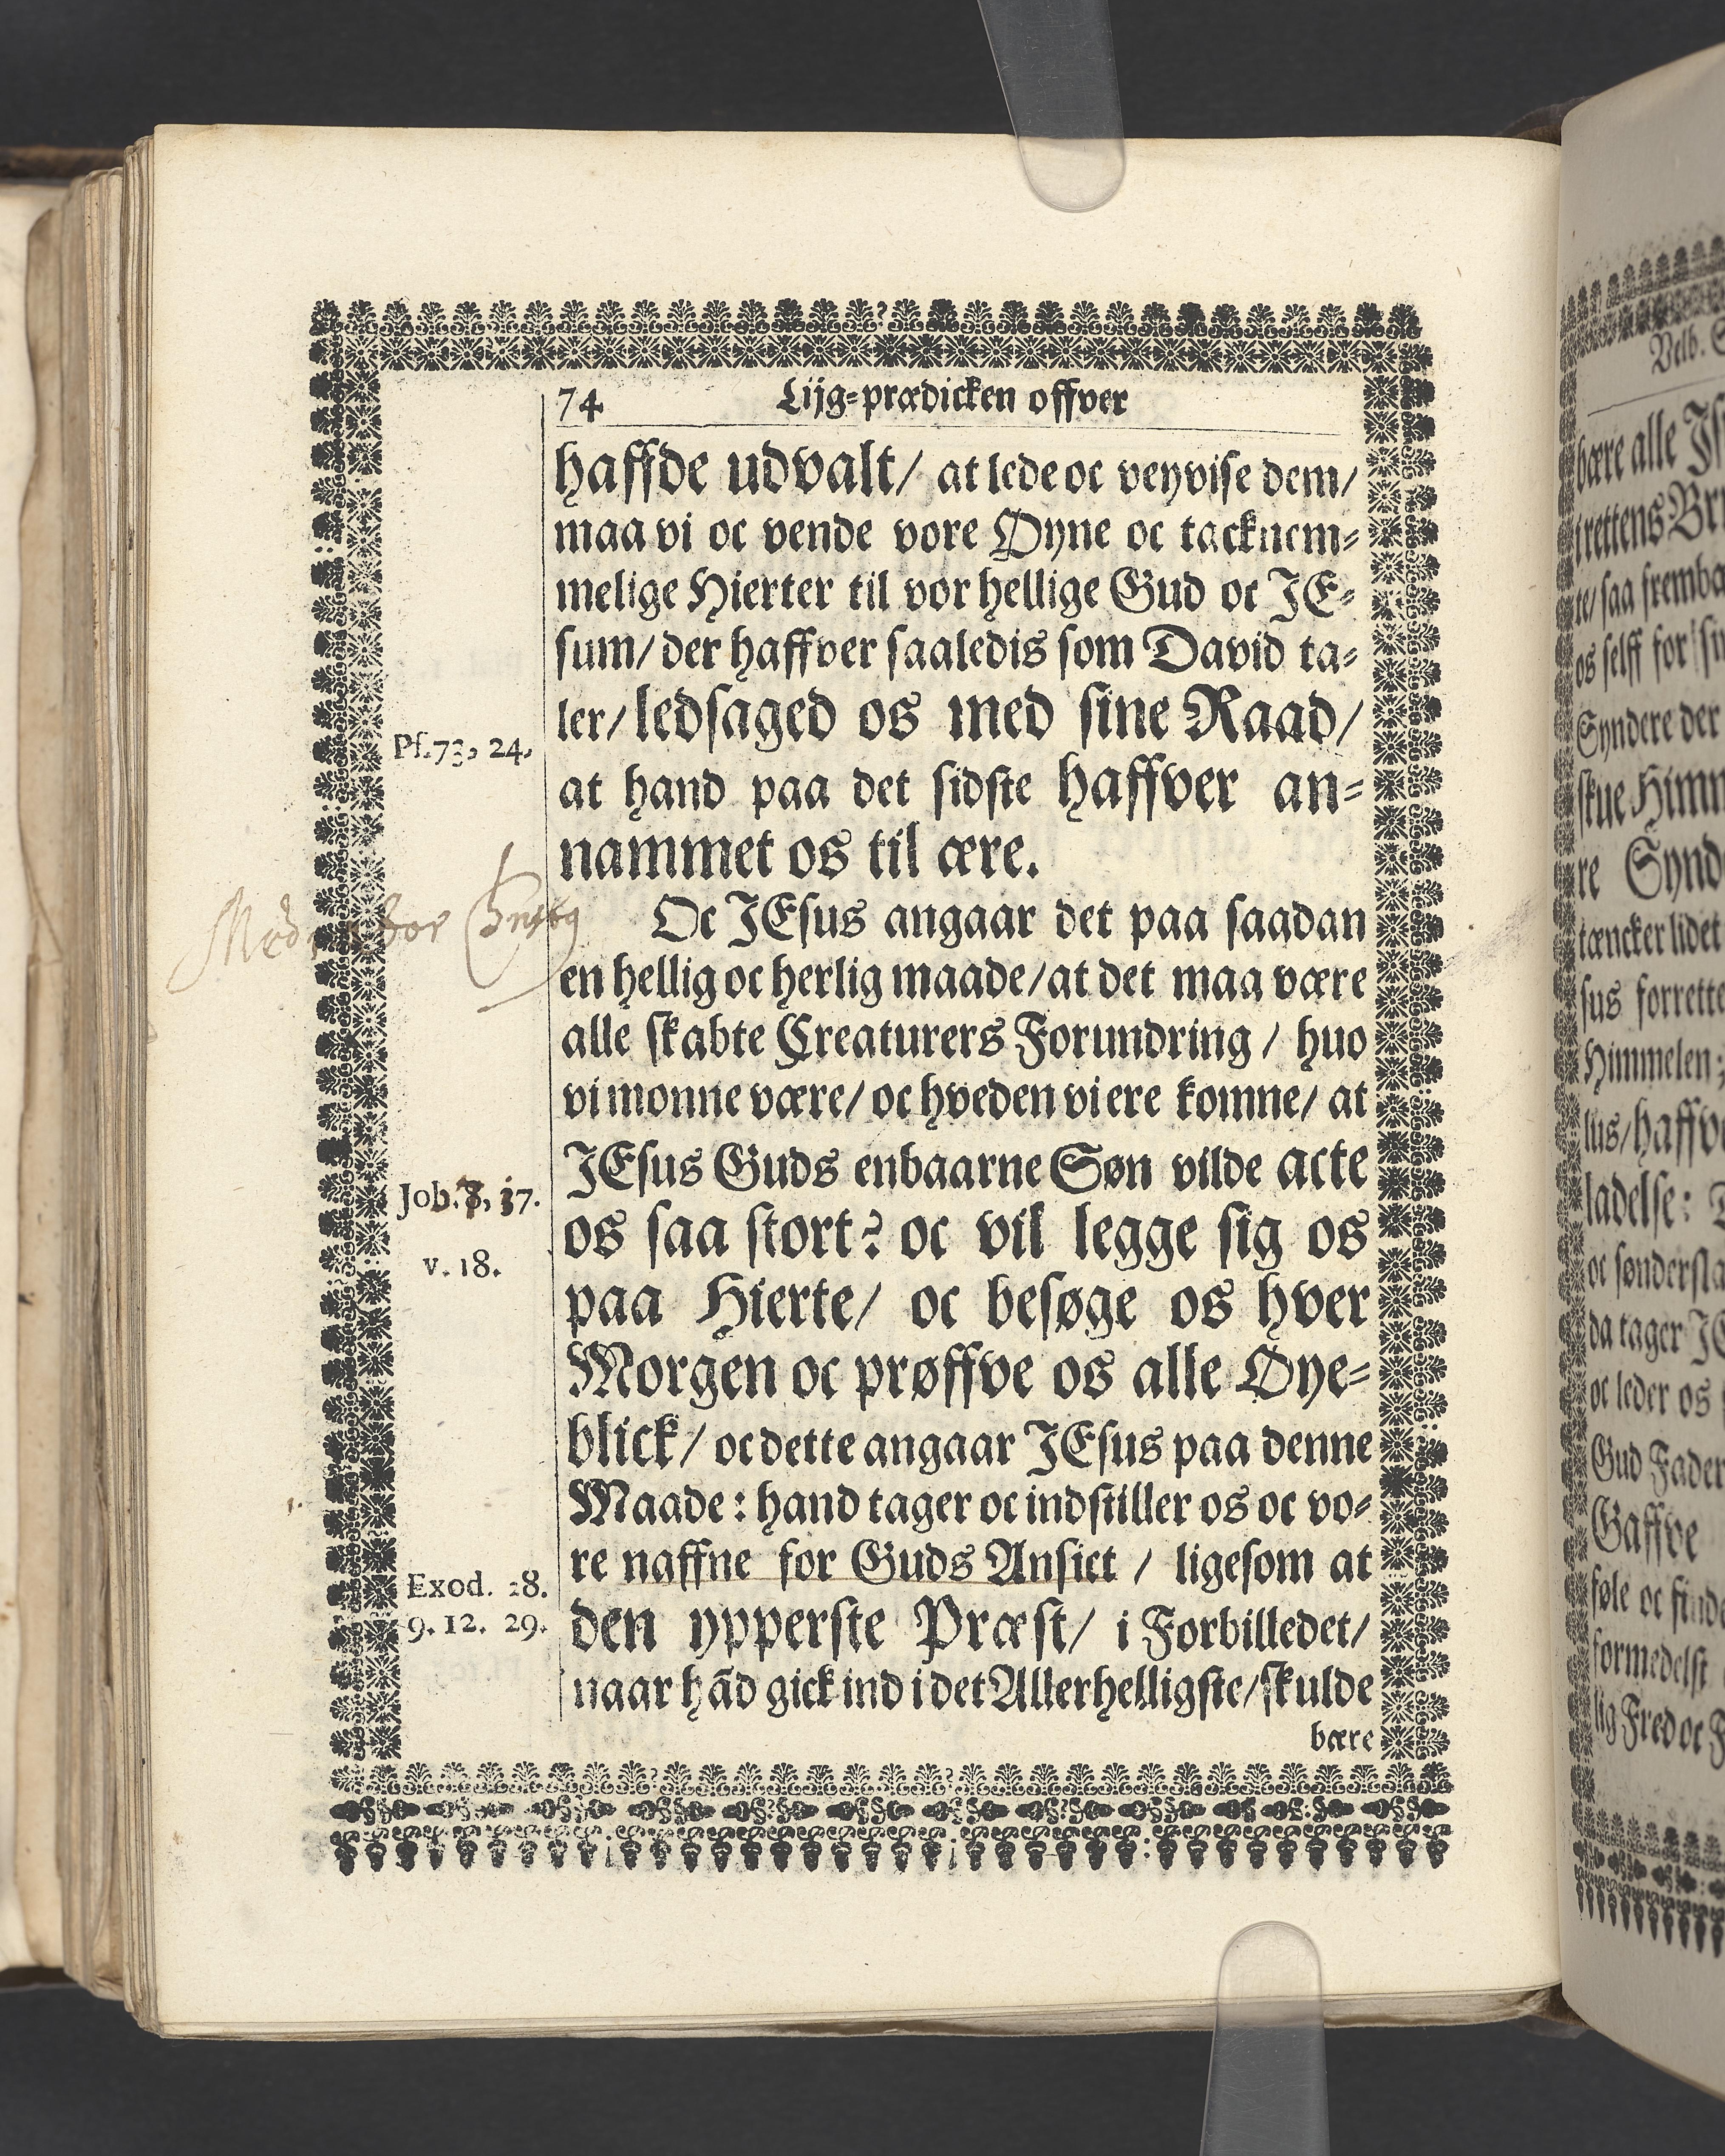 74
Lijg-prædicken offver
haffde udvalt/ at lede oc veyvise dem/
maa vi oc vende vore Øyne oc tacknem-
melige Hierter til vor hellige Gud oc JE-
sum/ der haffver saaledis som David ta-
ler/ ledsaged os med sine Raad/
Ps. 73, 24.
at hand paa det sidste haffver an-
nammet os til ære.
Oc JEsus angaar det paa saadan
en hellig oc herlig maade/ at det maa være
alle skabte Creaturers Forundring / huo
vi monne være/ oc hveden vi ere komne/ at
JEsus Guds enbaarne Søn vilde acte
Job. 7, 17.
os saa stort? oc vil legge sig os
v. 18.
paa Hierte/ oc besøge os hver
Morgen oc prøffve os alle Øye-
blick/ oc dette angaar JEsus paa denne
Maade: hand tager oc indstiller os oc vo-
re naffne for Guds Ansict / ligesom at
Exod. 28.
9. 12. 29.
den ypperste Præst/ i Forbilledet/
naar hãd gick ind i det Allerhelligste/ skulde
bære
Velb.
bære alle
te/ saa
os selff for
Syndere der
skue
re
tæncker lidet
sus
Himmelen
lus/
ladelse:
da tager
oc leder os
Gud Fader
Gaffve
føle oc
formedelst
lig Fred oc